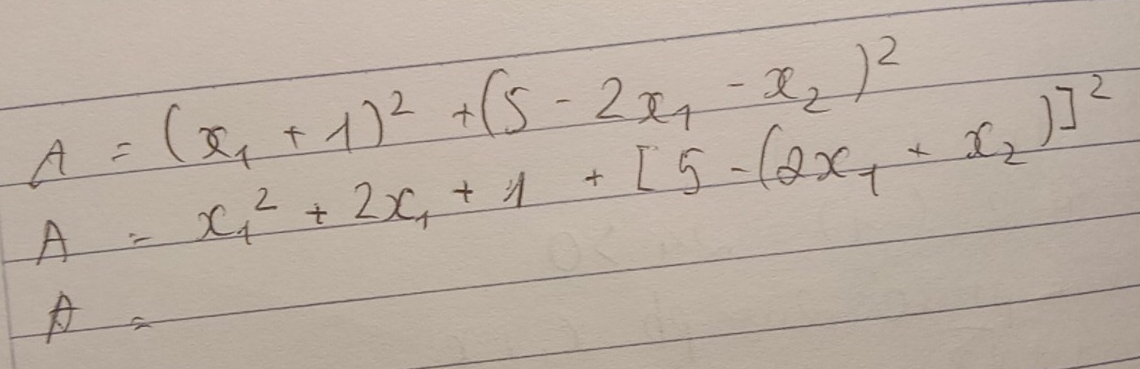 A = (x₁ + 1)² + (5 - 2x₁ - x₂)²
A = x₁² + 2x₁ + 1 + [5 - (2x₁ + x₂)]²
A =